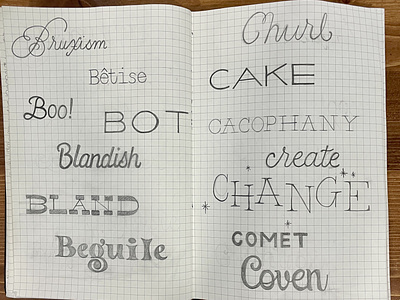 Bruxism
Bêtise
Boo!
BOT
Blandish
BLAND
Beguile
Churl
CAKE
CACOPHANY
create
CHANGE
COMET
Coven